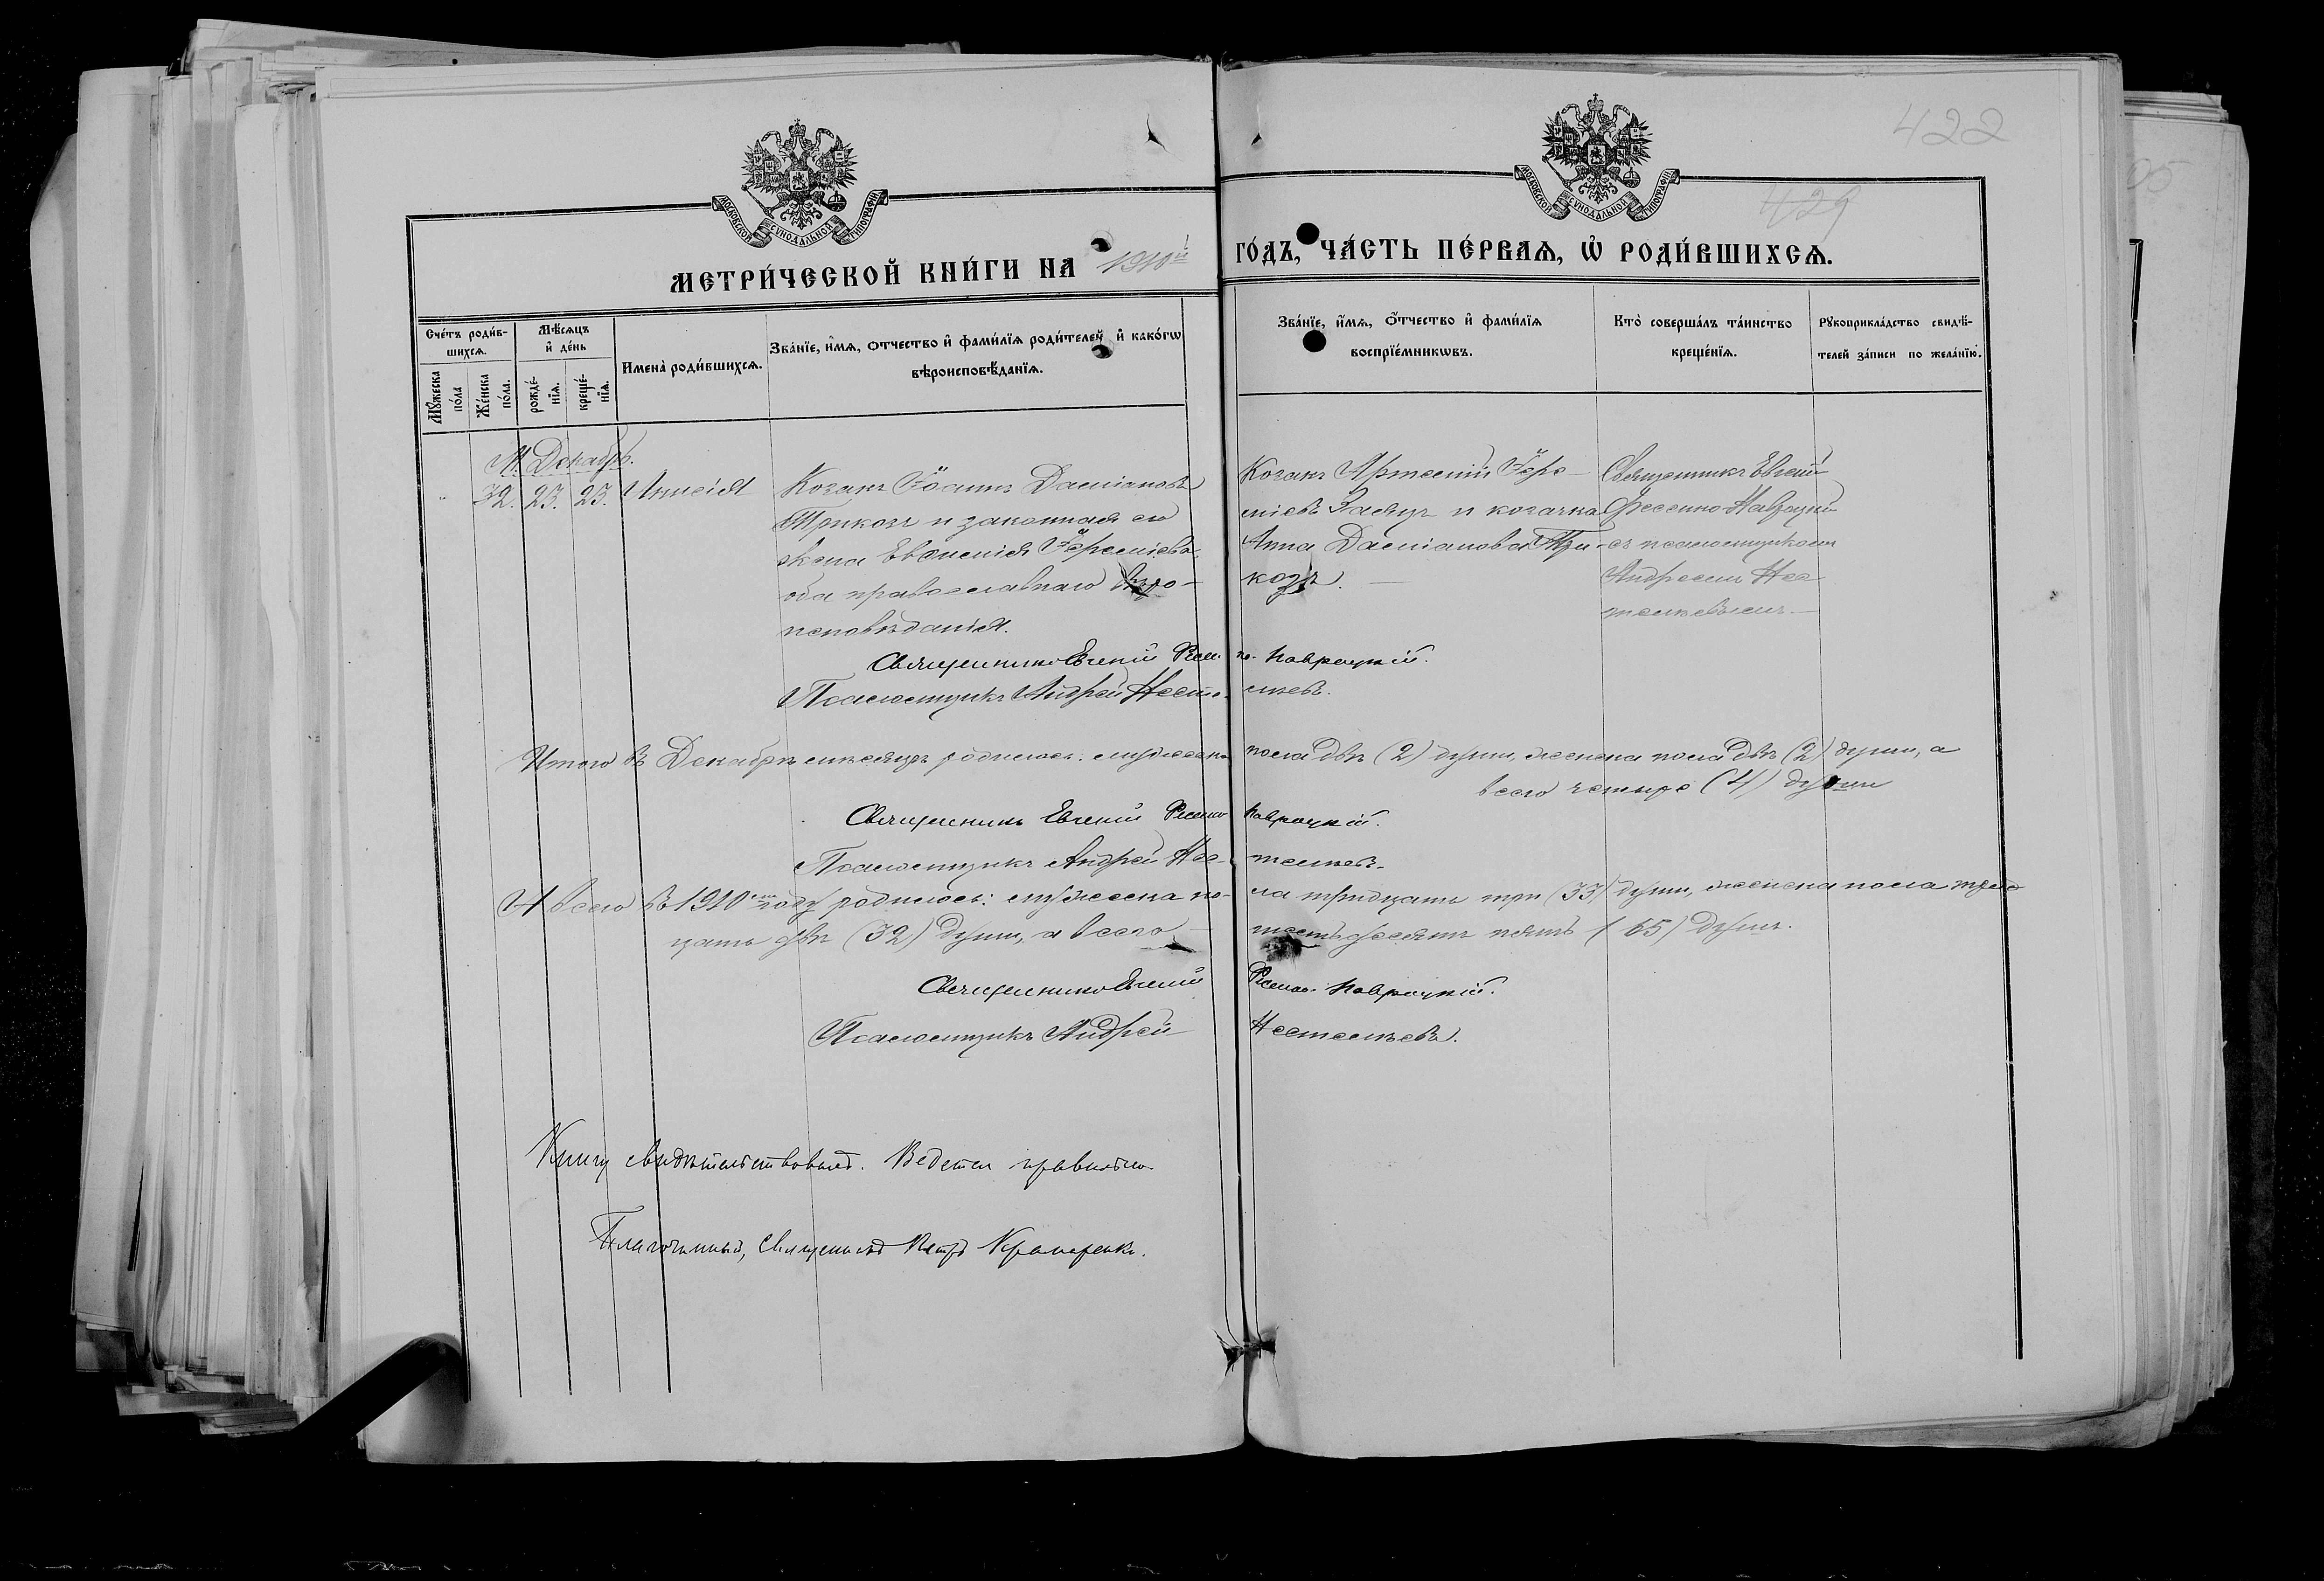 422
429
МОСКОВСКОЙ СѴНОДАЛЬНОЙ ТИПОГРАФІИ
МОСКОВСКОЙ СѴНОДАЛЬНОЙ ТИПОГРАФІИ
МЕТРИ́ЧЕСКОЙ КНИ́ГИ НА 1910й ГО́ДЪ, ЧА́СТЬ ПЕ́РВАѦ, Ѡ҆ РОДИ́ВШИХСѦ.
Сче́тъ роди́вшихсѧ.
Мꙋ́жеска по́ла
Же́нска по́ла.
Мѣ́сѧцъ и҆ де́нь
рожде́нїѧ.
креще́нїѧ.
Имена̀ роди́вшихсѧ.
Зва́нїе, и҆́мѧ, о́тчество и҆ фами́лїѧ роди́телей, и҆ како́гѡ вѣроисповѣ́данїѧ.
Зва́нїе, и҆́мѧ, о́тчество и҆ фами́лїѧ воспрїе́мникѡвъ.
Кто̀ соверша́лъ та́инство креще́нїѧ.
Рꙋкоприкла́дство свидѣ́телей за́писи по жела́нїю.
М. Декабрь.
32. 23. 25.
Козакъ Іоаннъ Даміановъ
Трикозъ и законная его
жена Евѳимія Іереміева,
оба православнаго вѣро-
исповѣданія.
Козакъ Артемій Іере-
міевъ Заяцъ и козачка
Анна Даміанова Три-
козъ.
Священникъ Евгеній
Фесенко-Навроцкій
съ псаломщикомъ
Андреемъ Нес-
Священникъ Евгеній Фесенко-Навроцкій.
Псаломщикъ Андрей
Итого въ Декабрѣ мѣсяцѣ родилось: мужеска пола двѣ (2) души, женска пола двѣ (2) души, а
всего четыре (4) души
Священникъ Евгеній Фесенко-Навроцкій.
Псаломщикъ Андрей
А всего въ 1910мъ году родилось: мужеска по-ла тридцать три (33) души, женска пола трид-
цать двѣ (32) души, а всего шестьдесятъ пять (65) душъ.
Священникъ Евгеній Фесенко-Навроцкій.
Псаломщикъ Андрей
Книгу свидѣтельствовалъ. Ведется правильно.
Благочинный, Священникъ Петръ